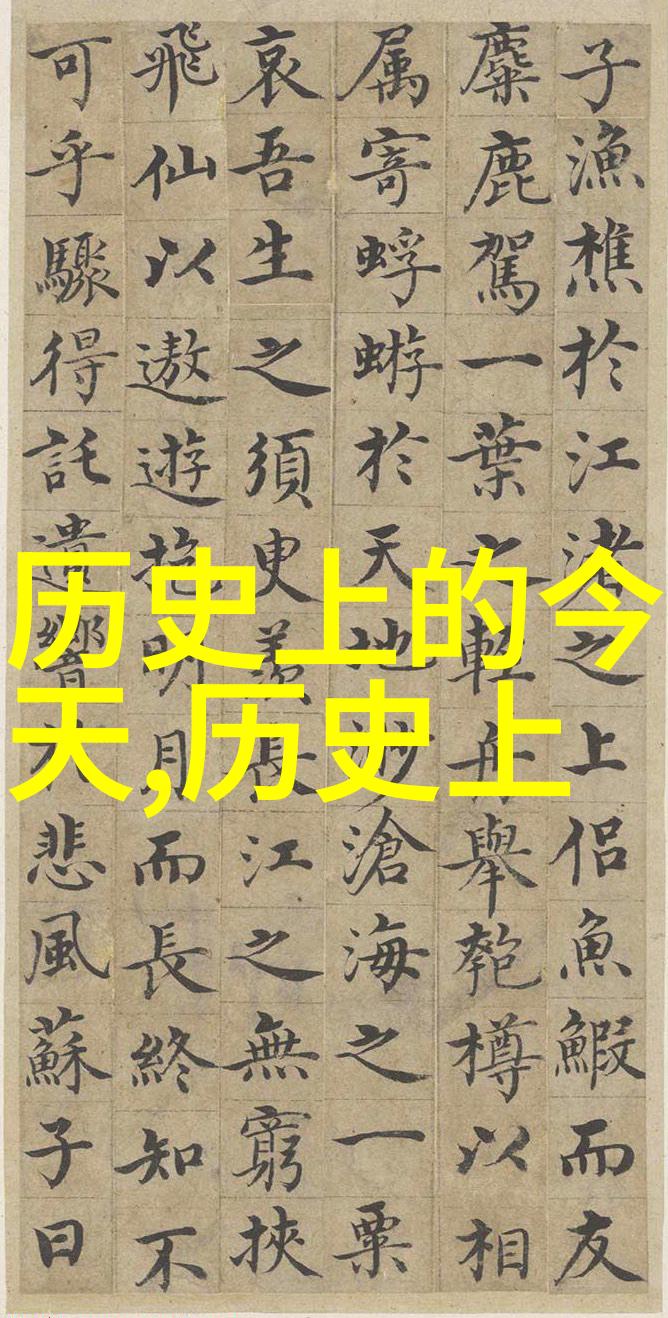 子漁樵於江渚之上侶魚鰕而友
麋鹿駕一葉之輕舟舉匏樽以相
属寄蜉蝣於天地渺滄海之一粟
哀吾生之須臾羨長江之無窮挾
飛仙以遨遊抱明月而長終知不
可乎驟得託遺響於悲風蘇子曰
历史上的今
天,历史上